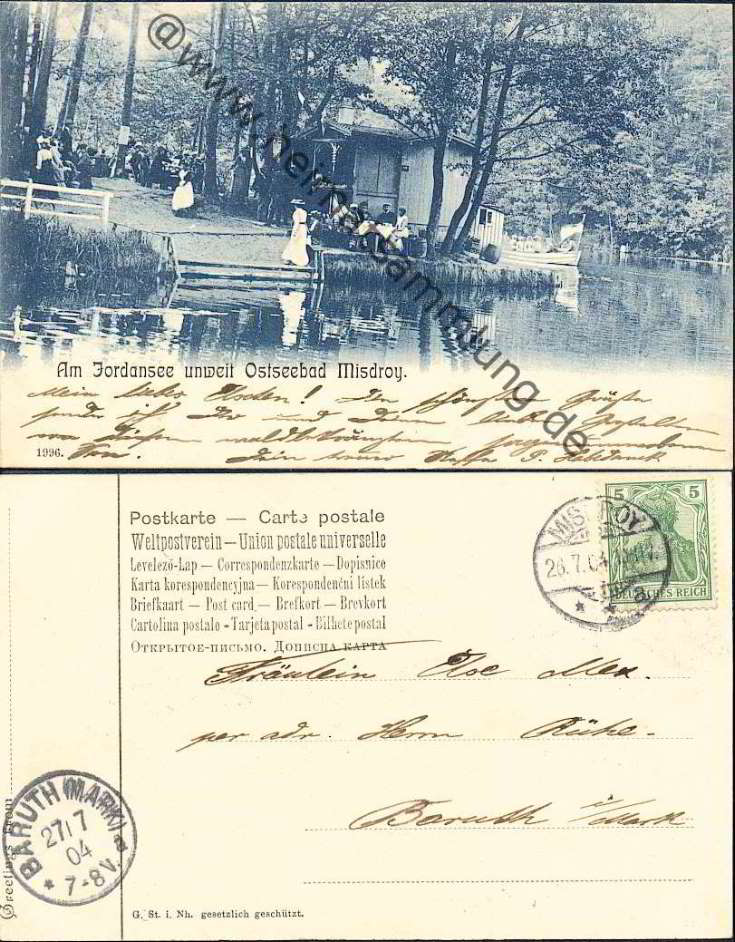 @www.heimatsammlung.de
Am Jordansee unweit Ostseebad Misdroy.
Mein liebes Elschen! Die schönsten Grüße
sende ich Dir und Deinen
von diesem
1996. Dein treuer
Postkarte — Carte postale
Weltpostverein — Union postale universelle
Levelező-Lap — Correspondenzkarte — Dopisnice
Karta korespondencyjna — Korespondenční lístek
Briefkaart — Post card — Brefkort — Brevkort
Cartolina postale - Tarjeta postal - Bilhete postal
Открытое-письмо. Дописна карта
MISDROY
26.7.04
5 5
DEUTSCHES REICH
Fräulein Else Mex.
per adr. Herrn Rühe.
Baruth i/Mark
BARUTH (MARK) a
27/7
04
* 7-8 V.
Greetings from
G. St. i. Nh. gesetzlich geschützt.